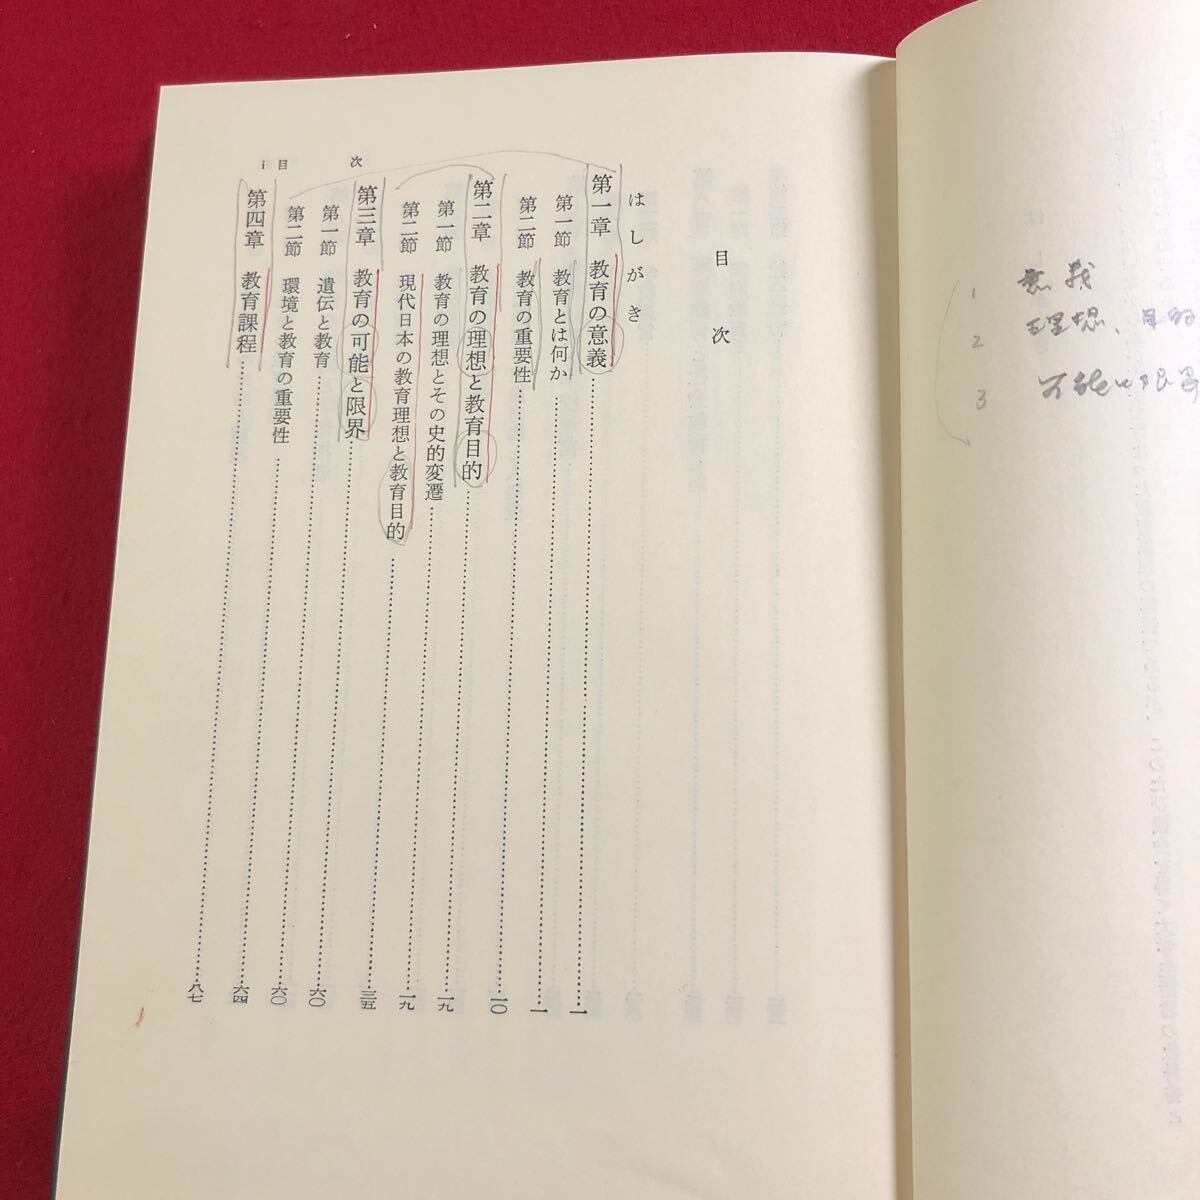 1 意義
2 理想、目的
3 可能と限界
目次
はしがき
第一章 教育の意義……一
第一節 教育とは何か……一
第二節 教育の重要性……一〇
第二章 教育の理想と教育目的……一九
第一節 教育の理想とその史的変遷……一九
第二節 現代日本の教育理想と教育目的……三五
第三章 教育の可能と限界……六〇
第一節 遺伝と教育……六〇
第二節 環境と教育の重要性……六四
第四章 教育課程……八七
目次 i